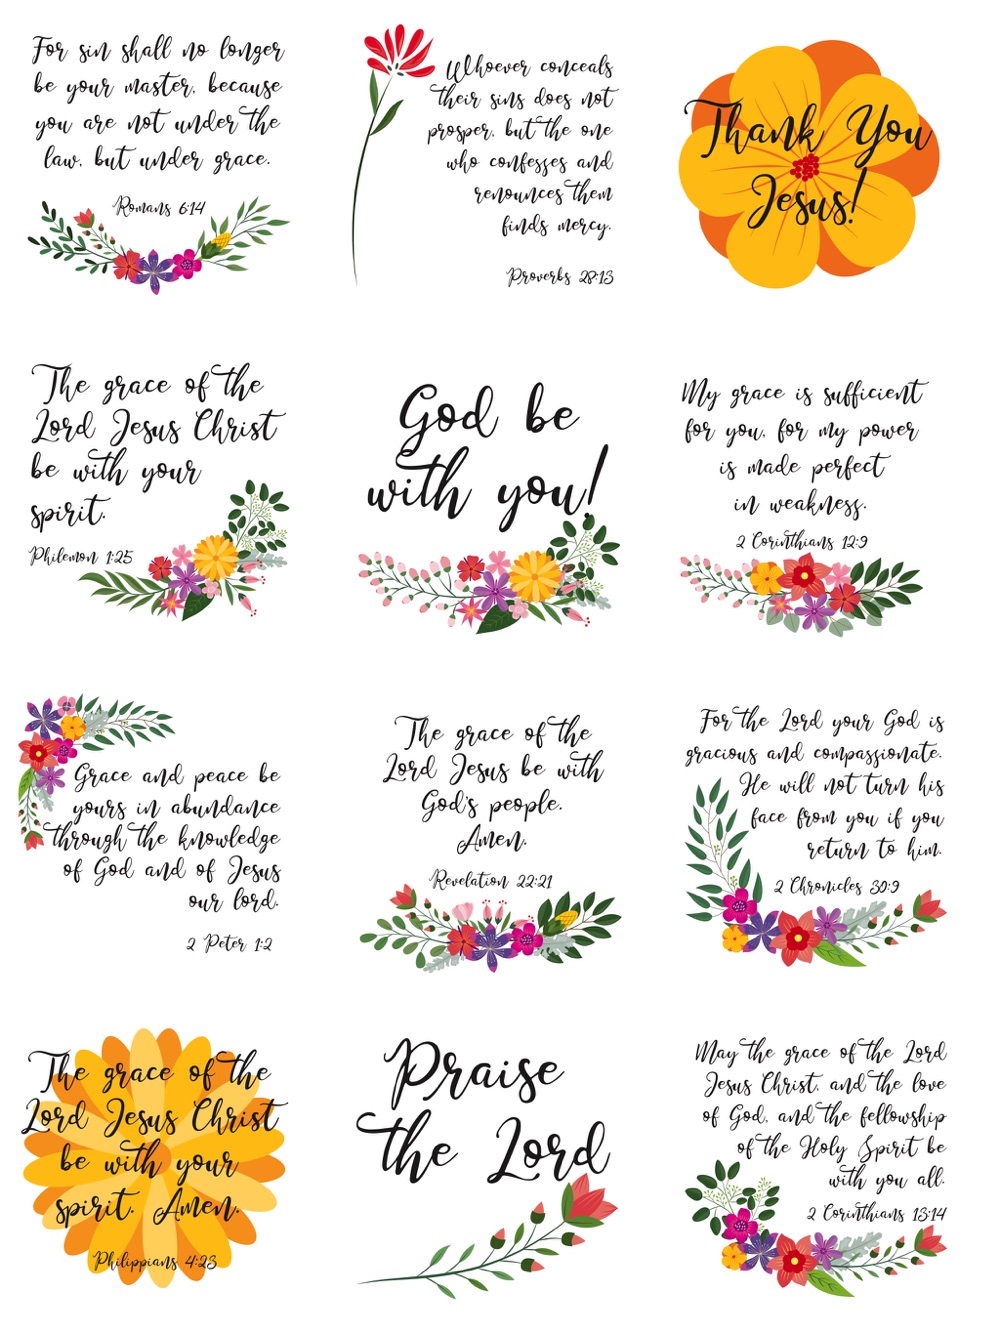 For sin shall no longer
be your master, because
you are not under the
law, but under grace.
Romans 6:14
Whoever conceals
their sins does not
prosper, but the one
who confesses and
renounces them
finds mercy.
Proverbs 28:13
Thank You
Jesus!
The grace of the
Lord Jesus Christ
be with your
spirit.
Philemon 1:25
God be
with you!
My grace is sufficient
for you, for my power
is made perfect
in weakness.
2 Corinthians 12:9
Grace and peace be
yours in abundance
through the knowledge
of God and of Jesus
our lord.
2 Peter 1:2
The grace of the
Lord Jesus be with
God's people.
Amen.
Revelation 22:21
For the Lord your God is
gracious and compassionate.
He will not turn his
face from you if you
return to him.
2 Chronicles 30:9
The grace of the
Lord Jesus Christ
be with your
spirit. Amen.
Philippians 4:23
Praise
the Lord
May the grace of the Lord
Jesus Christ, and the love
of God, and the fellowship
of the Holy Spirit be
with you all.
2 Corinthians 13:14